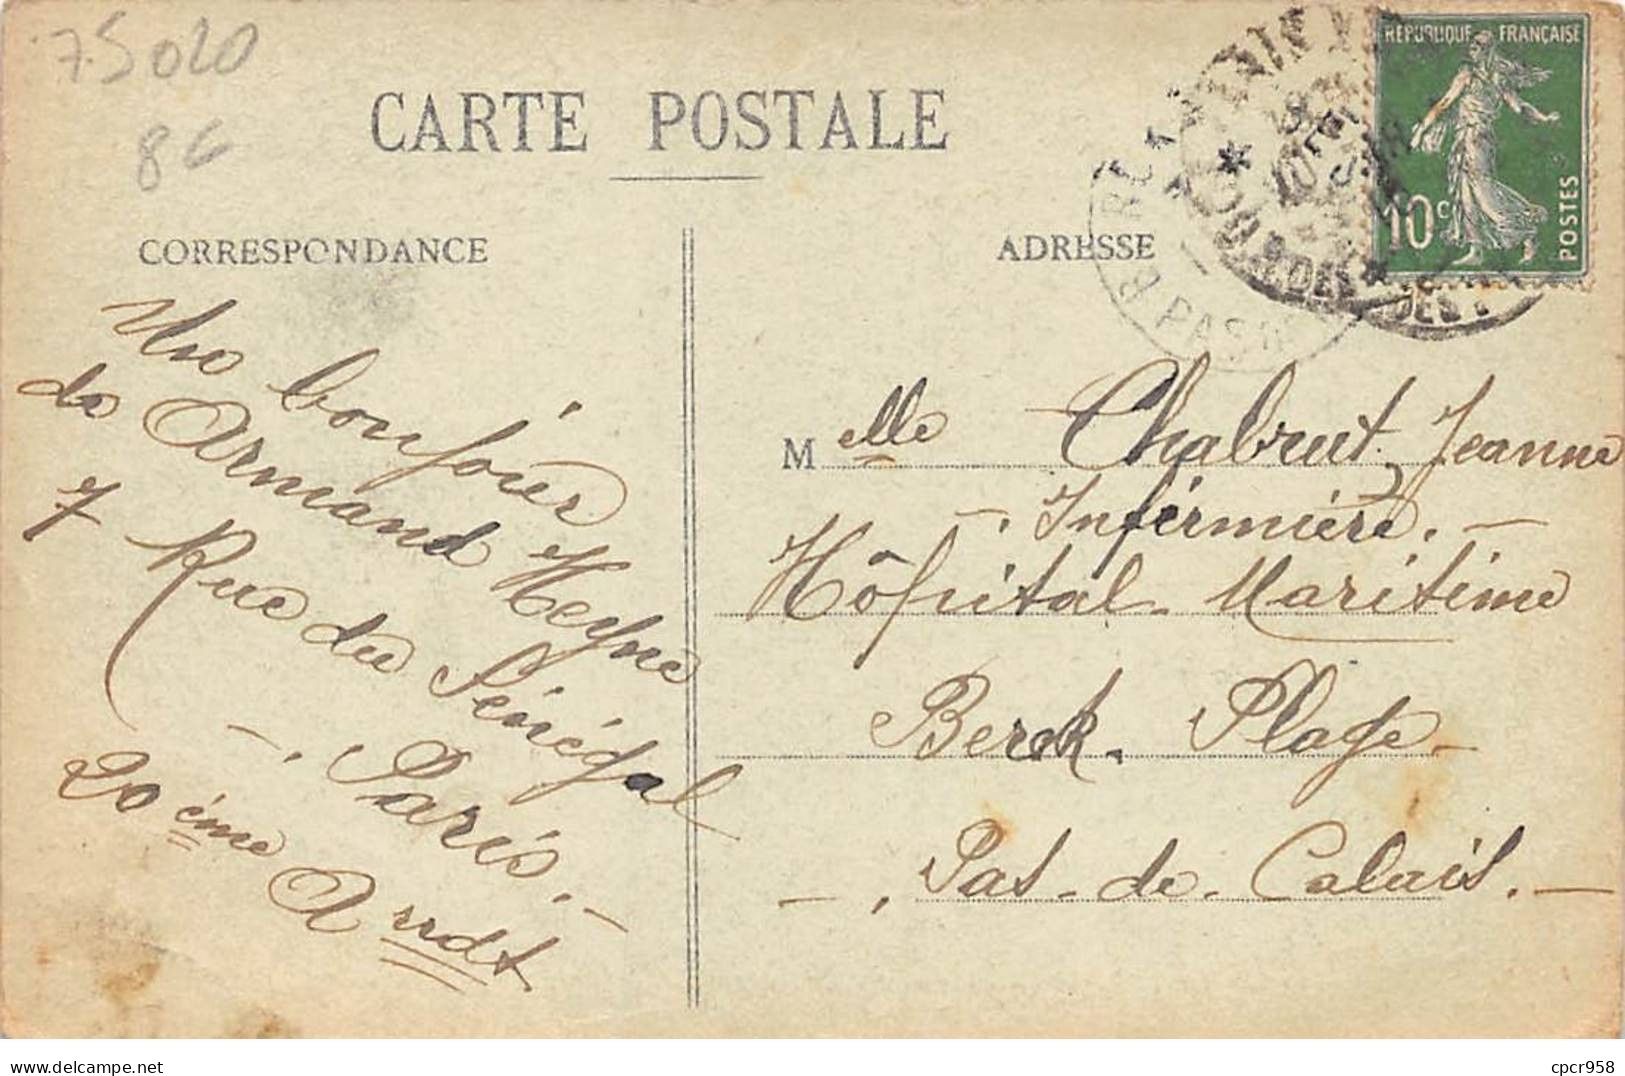 75020
86
CARTE POSTALE
CORRESPONDANCE
ADRESSE
RÉPUBLIQUE FRANÇAISE
10c
POSTES
Un bonjour
de Armand Heyne
7 Rue du Sénégal
- . Paris. -
20ème Arrdt
Melle Chabrut Jeanne
- . Infirmière. -
Hôpital Maritime
Berck. Plage -
- . Pas-de-Calais. -
cpcr958